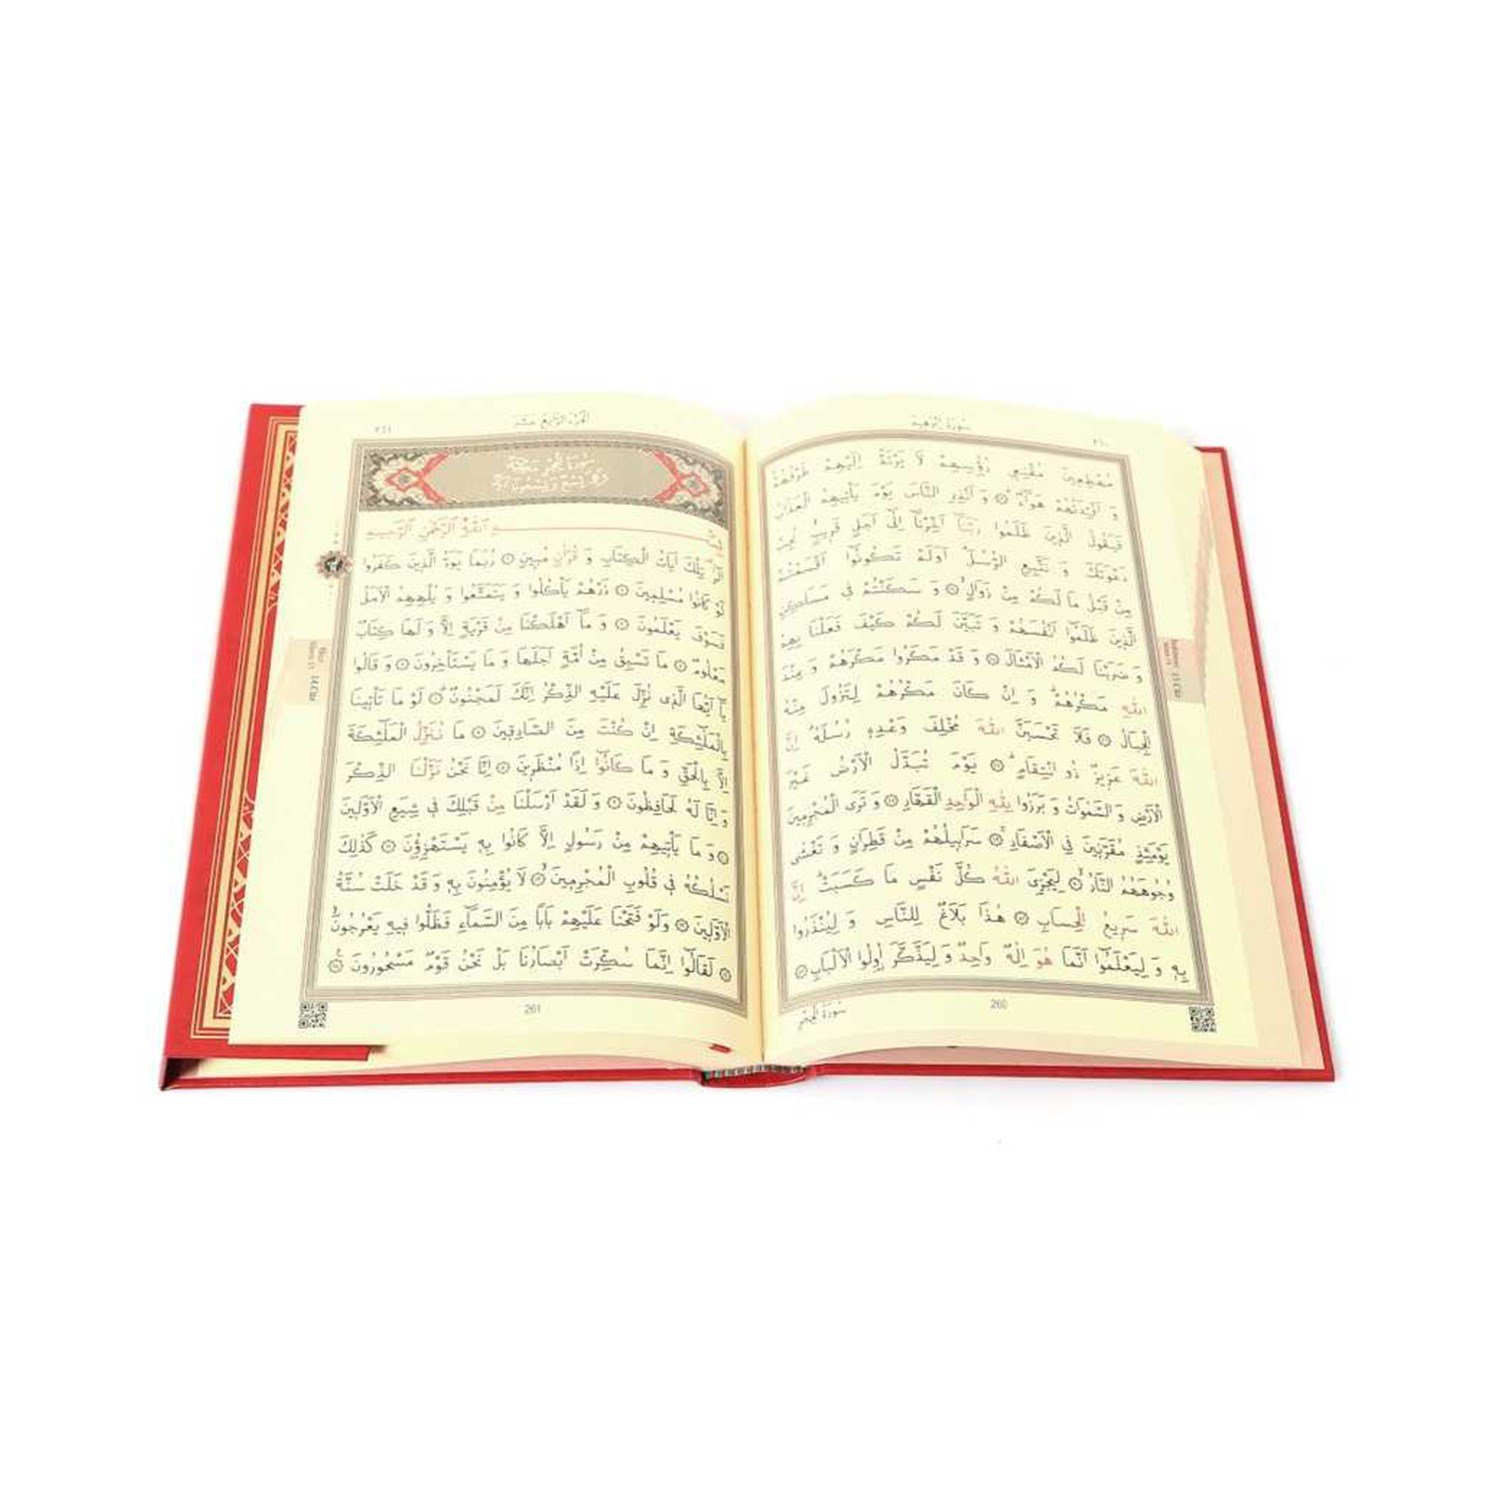 سُورَةُ إِبْرٰهِيمَ
٢٦٠
مُهْطِعِينَ مُقْنِعِى رُؤُسِهِمْ لَا يَرْتَدُّ اِلَيْهِمْ طَرْفُهُمْ
وَ اَفْـِٔدَتُهُمْ هَوَٓاءٌ ۞ وَ اَنْذِرِ النَّاسَ يَوْمَ يَأْتِيهِمُ الْعَذَابُ
فَيَقُولُ الَّذِينَ ظَلَمُوا رَبَّنَٓا اَخِّرْنَٓا اِلٰٓى اَجَلٍ قَرِيبٍ نُجِبْ
دَعْوَتَكَ وَ نَتَّبِعِ الرُّسُلَ اَوَلَمْ تَكُونُٓوا اَقْسَمْتُمْ
مِنْ قَبْلُ مَا لَكُمْ مِنْ زَوَالٍ ۞ وَ سَكَنْتُمْ فِى مَسَاكِنِ
الَّذِينَ ظَلَمُٓوا اَنْفُسَهُمْ وَ تَبَيَّنَ لَكُمْ كَيْفَ فَعَلْنَا بِهِمْ
وَ ضَرَبْنَا لَكُمُ الْاَمْثَالَ ۞ وَ قَدْ مَكَرُوا مَكْرَهُمْ وَ عِنْدَ
اللّٰهِ مَكْرُهُمْ وَ اِنْ كَانَ مَكْرُهُمْ لِتَزُولَ مِنْهُ
الْجِبَالُ ۞ فَلَا تَحْسَبَنَّ اللّٰهَ مُخْلِفَ وَعْدِهِ رُسُلَهُ اِنَّ
اللّٰهَ عَزِيزٌ ذُو انْتِقَامٍ ۞ يَوْمَ تُبَدَّلُ الْاَرْضُ غَيْرَ
الْاَرْضِ وَ السَّمٰوَاتُ وَ بَرَزُوا لِلّٰهِ الْوَاحِدِ الْقَهَّارِ ۞ وَ تَرَى الْمُجْرِمِينَ
يَوْمَئِذٍ مُقَرَّنِينَ فِى الْاَصْفَادِ ۞ سَرَابِيلُهُمْ مِنْ قَطِرَانٍ وَ تَغْشٰى
وُجُوهَهُمُ النَّارُ ۞ لِيَجْزِىَ اللّٰهُ كُلَّ نَفْسٍ مَا كَسَبَتْ اِنَّ
اللّٰهَ سَرِيعُ الْحِسَابِ ۞ هٰذَا بَلَاغٌ لِلنَّاسِ وَ لِيُنْذَرُوا
بِهِ وَ لِيَعْلَمُٓوا اَنَّمَا هُوَ اِلٰهٌ وَاحِدٌ وَ لِيَذَّكَّرَ اُولُوا الْاَلْبَابِ ۞
260
سُورَةُ الْحِجْرِ
اَلْجُزْءُ الرَّابِعُ عَشَرَ
٢٦١
اللّٰهِ الرَّحْمٰنِ الرَّحِيمِ
الٓرٰ تِلْكَ اٰيَاتُ الْكِتَابِ وَ قُرْاٰنٍ مُبِينٍ ۞ رُبَمَا يَوَدُّ الَّذِينَ كَفَرُوا
لَوْ كَانُوا مُسْلِمِينَ ۞ ذَرْهُمْ يَأْكُلُوا وَ يَتَمَتَّعُوا وَ يُلْهِهِمُ الْاَمَلُ
فَسَوْفَ يَعْلَمُونَ ۞ وَ مَٓا اَهْلَكْنَا مِنْ قَرْيَةٍ اِلَّا وَ لَهَا كِتَابٌ
مَعْلُومٌ ۞ مَا تَسْبِقُ مِنْ اُمَّةٍ اَجَلَهَا وَ مَا يَسْتَأْخِرُونَ ۞ وَ قَالُوا
يَٓا اَيُّهَا الَّذِى نُزِّلَ عَلَيْهِ الذِّكْرُ اِنَّكَ لَمَجْنُونٌ ۞ لَوْ مَا تَأْتِينَا
بِالْمَلٰٓئِكَةِ اِنْ كُنْتَ مِنَ الصَّادِقِينَ ۞ مَا نُنَزِّلُ الْمَلٰٓئِكَةَ
اِلَّا بِالْحَقِّ وَ مَا كَانُٓوا اِذًا مُنْظَرِينَ ۞ اِنَّا نَحْنُ نَزَّلْنَا الذِّكْرَ
وَ اِنَّا لَهُ لَحَافِظُونَ ۞ وَ لَقَدْ اَرْسَلْنَا مِنْ قَبْلِكَ فِى شِيَعِ الْاَوَّلِينَ
۞ وَ مَا يَأْتِيهِمْ مِنْ رَسُولٍ اِلَّا كَانُوا بِهِ يَسْتَهْزِؤُنَ ۞ كَذٰلِكَ
نَسْلُكُهُ فِى قُلُوبِ الْمُجْرِمِينَ ۞ لَا يُؤْمِنُونَ بِهِ وَ قَدْ خَلَتْ سُنَّةُ
الْاَوَّلِينَ ۞ وَلَوْ فَتَحْنَا عَلَيْهِمْ بَابًا مِنَ السَّمَٓاءِ فَظَلُّوا فِيهِ يَعْرُجُونَ
۞ لَقَالُٓوا اِنَّمَا سُكِّرَتْ اَبْصَارُنَا بَلْ نَحْنُ قَوْمٌ مَسْحُورُونَ ۞
261